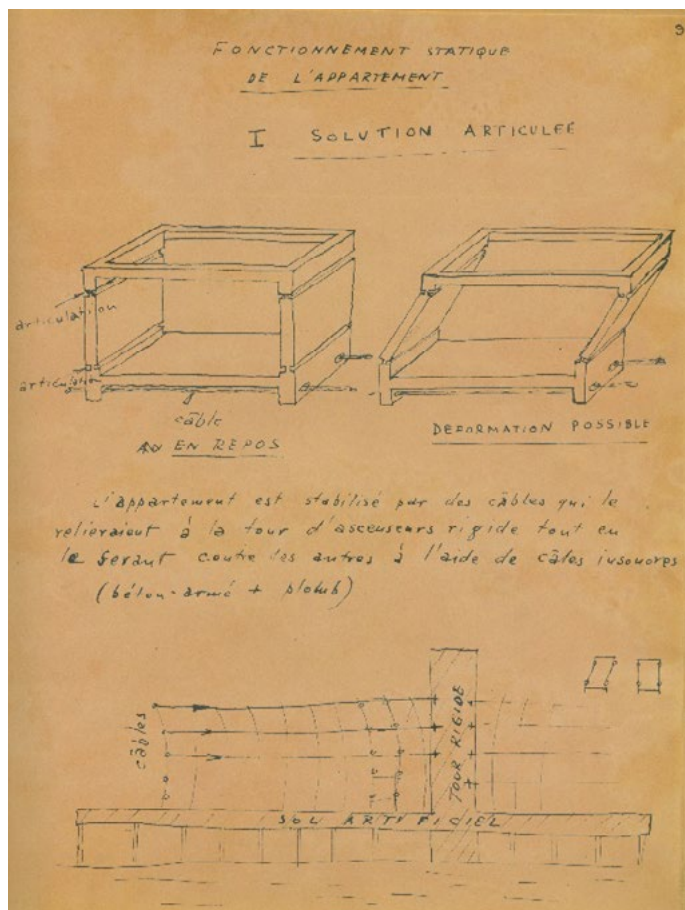 9
FONCTIONNEMENT STATIQUE
DE L'APPARTEMENT
I SOLUTION ARTICULEE
articulation
articulation
câble
EN REPOS
DEFORMATION POSSIBLE
L'appartement est stabilisé par des câbles qui le
relieraient à la tour d'ascenseurs rigide tout en
le serant contre les autres à l'aide de câles insonores
(béton-armé + plomb)
câbles
TOUR RIGIDE
SOL ARTIFICIEL